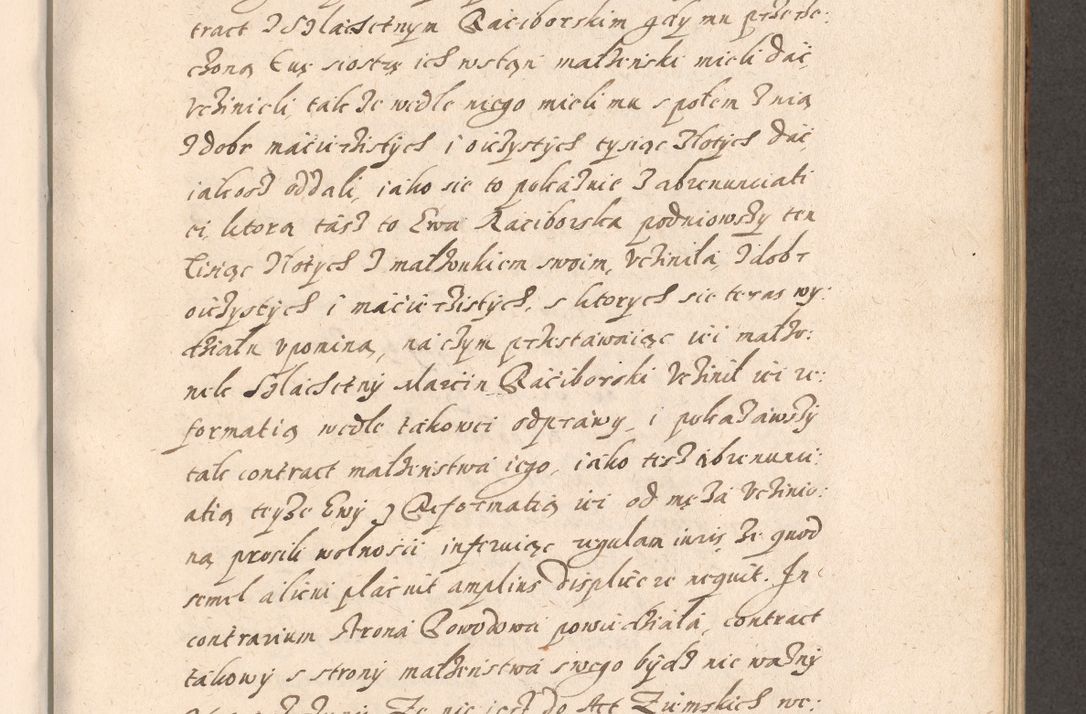 tract z Szlachetnym Raciborskim gdy mu przerze:
czoną Ewę siostrę ich wstąn małżenski mieli dać,
vczinieli, tak że wedle niego mieli mu s potem z nią
z dobr macierzistych i oiczystych tysiąc złotych dać,
iakosz oddali, iako sie to pokażuie z abrenunciati
ei, ktorą tasz to Ewa Raciborska podniowszy ten
tisiąc złotych z małżonkiem swoim, vcziniła, z dobr
oiczystych i macierzistych, s ktorych sie teras wy:
działu vpomina, na czym przestawaiąc iei małżo:
nek Szlachetny Marcin Raciborski vczinił iei re:
formatią wedle takowei odprawy, i pokazawszy
tak contract małżenstwa iego, iako tesz abrenunci:
atią teyże Ewy y Reformatią iei od męża vczinio:
ną prosili wolności inferuiąc regulam iuris, że quod
semel alicui placuit amplius displicere nequit. In
contrarium strona Powodowa powiedziała, contract
takowy s strony małżenstwa swego bydź nie ważny
że nie iest do Act Ziemskich we: